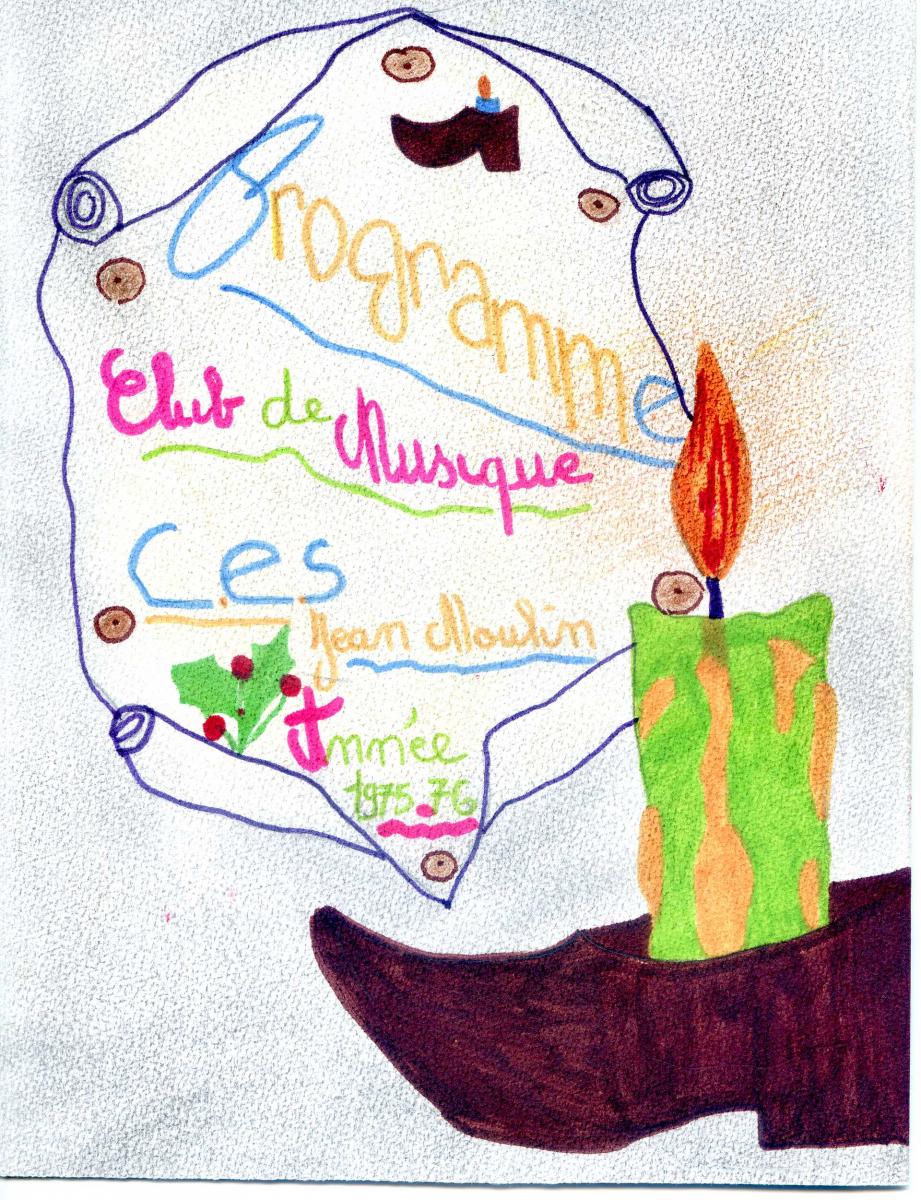 Programme
Club de Musique
C.e.s
Jean Moulin
Année
1975.76